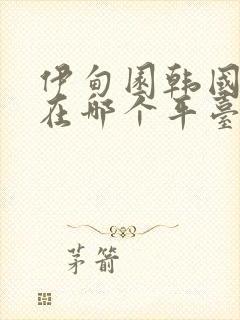 伊甸園韩國
在哪个平臺
茅箭